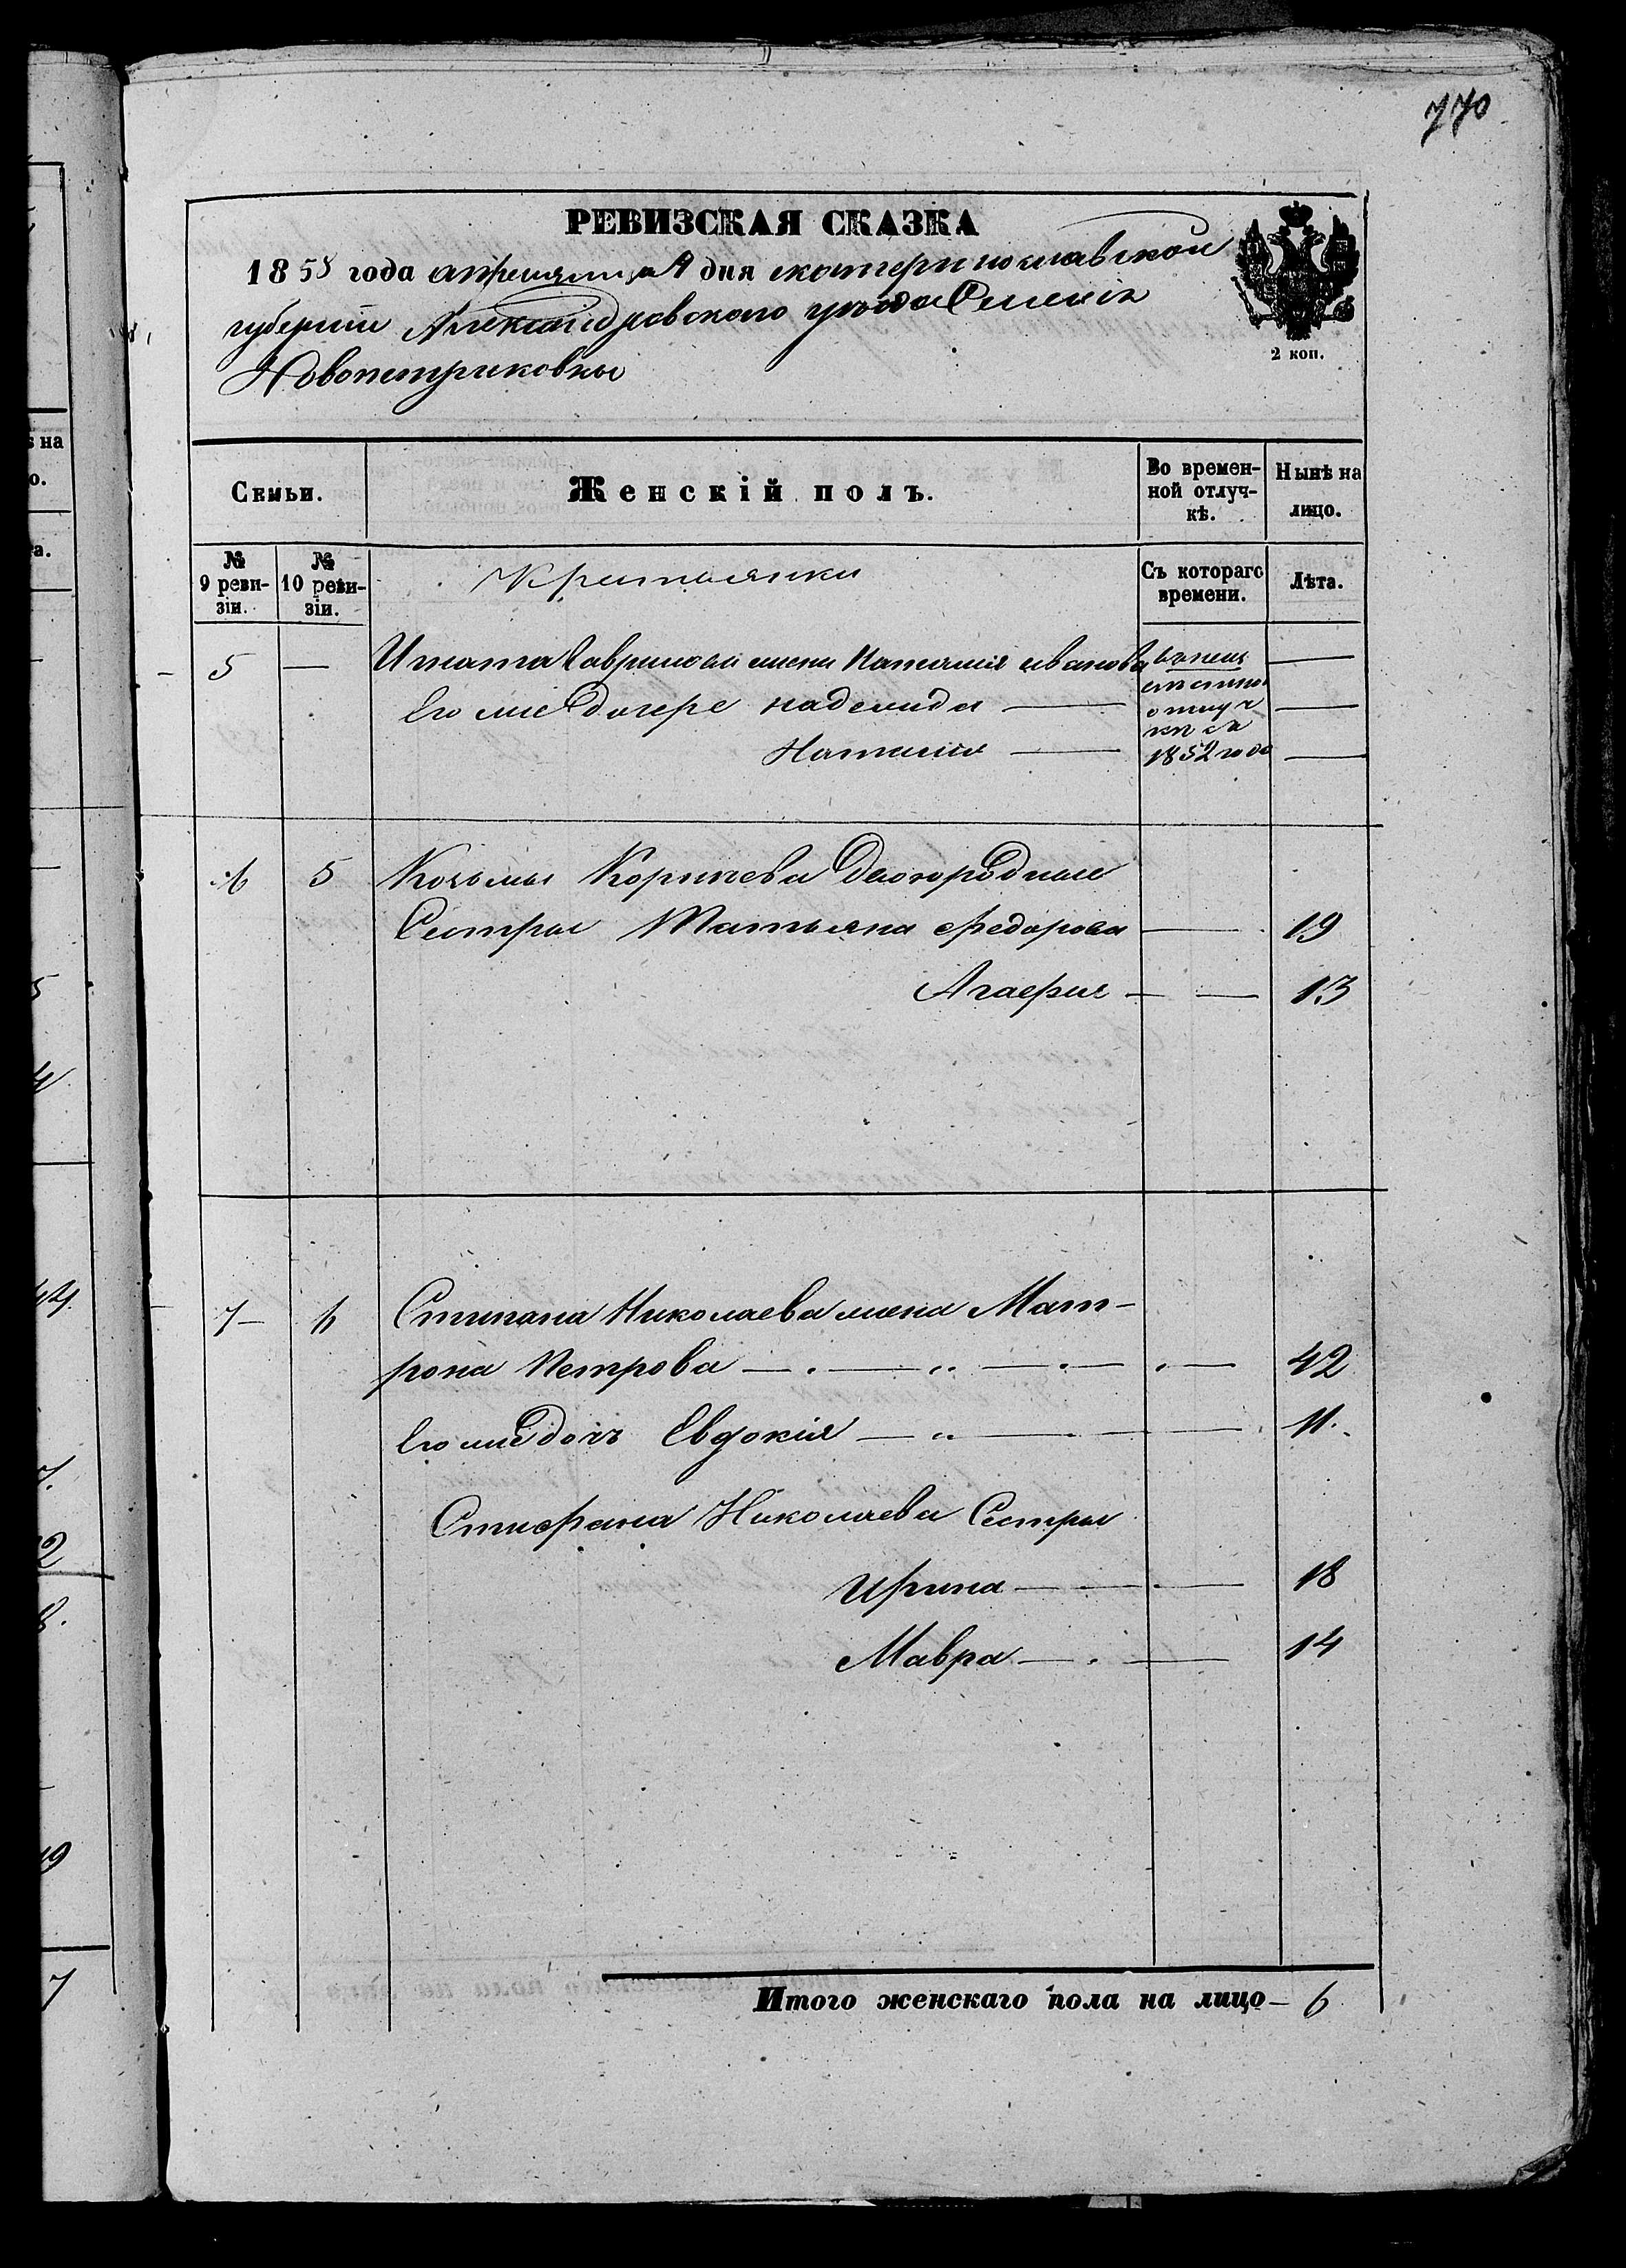 770
РЕВИЗСКАЯ СКАЗКА
1858 года апреля дня екатеринославской
губернии Александровского уезда Селенія
Новопетриковки
2 коп.
Семьи.
Женскій полъ.
Во времен-
ной отлуч-
кѣ.
Нынѣ на
лицо.
№
9 реви-
зіи.
№
10 реви-
зіи.
Крестьянки
Съ котораго
времени.
Лѣта.
5 — Игната Гаврилова жена Наталия иванова
его же дочере надежда —
Наталия —
отлуч
ки съ
1852 года
6 5 Козьмы Корнеева Двоюродные
Сестры Татьяна федорова — 19
Агафия — — 13
7 — 6 Степана Николаева жена Мат-
рона Петрова — 42
его же дочь Евдокія — 11.
Стефана Николаева Сестры
Ирина — 18
Мавра — 14
Итого женскаго пола на лицо — 6
на
о.
а.
7